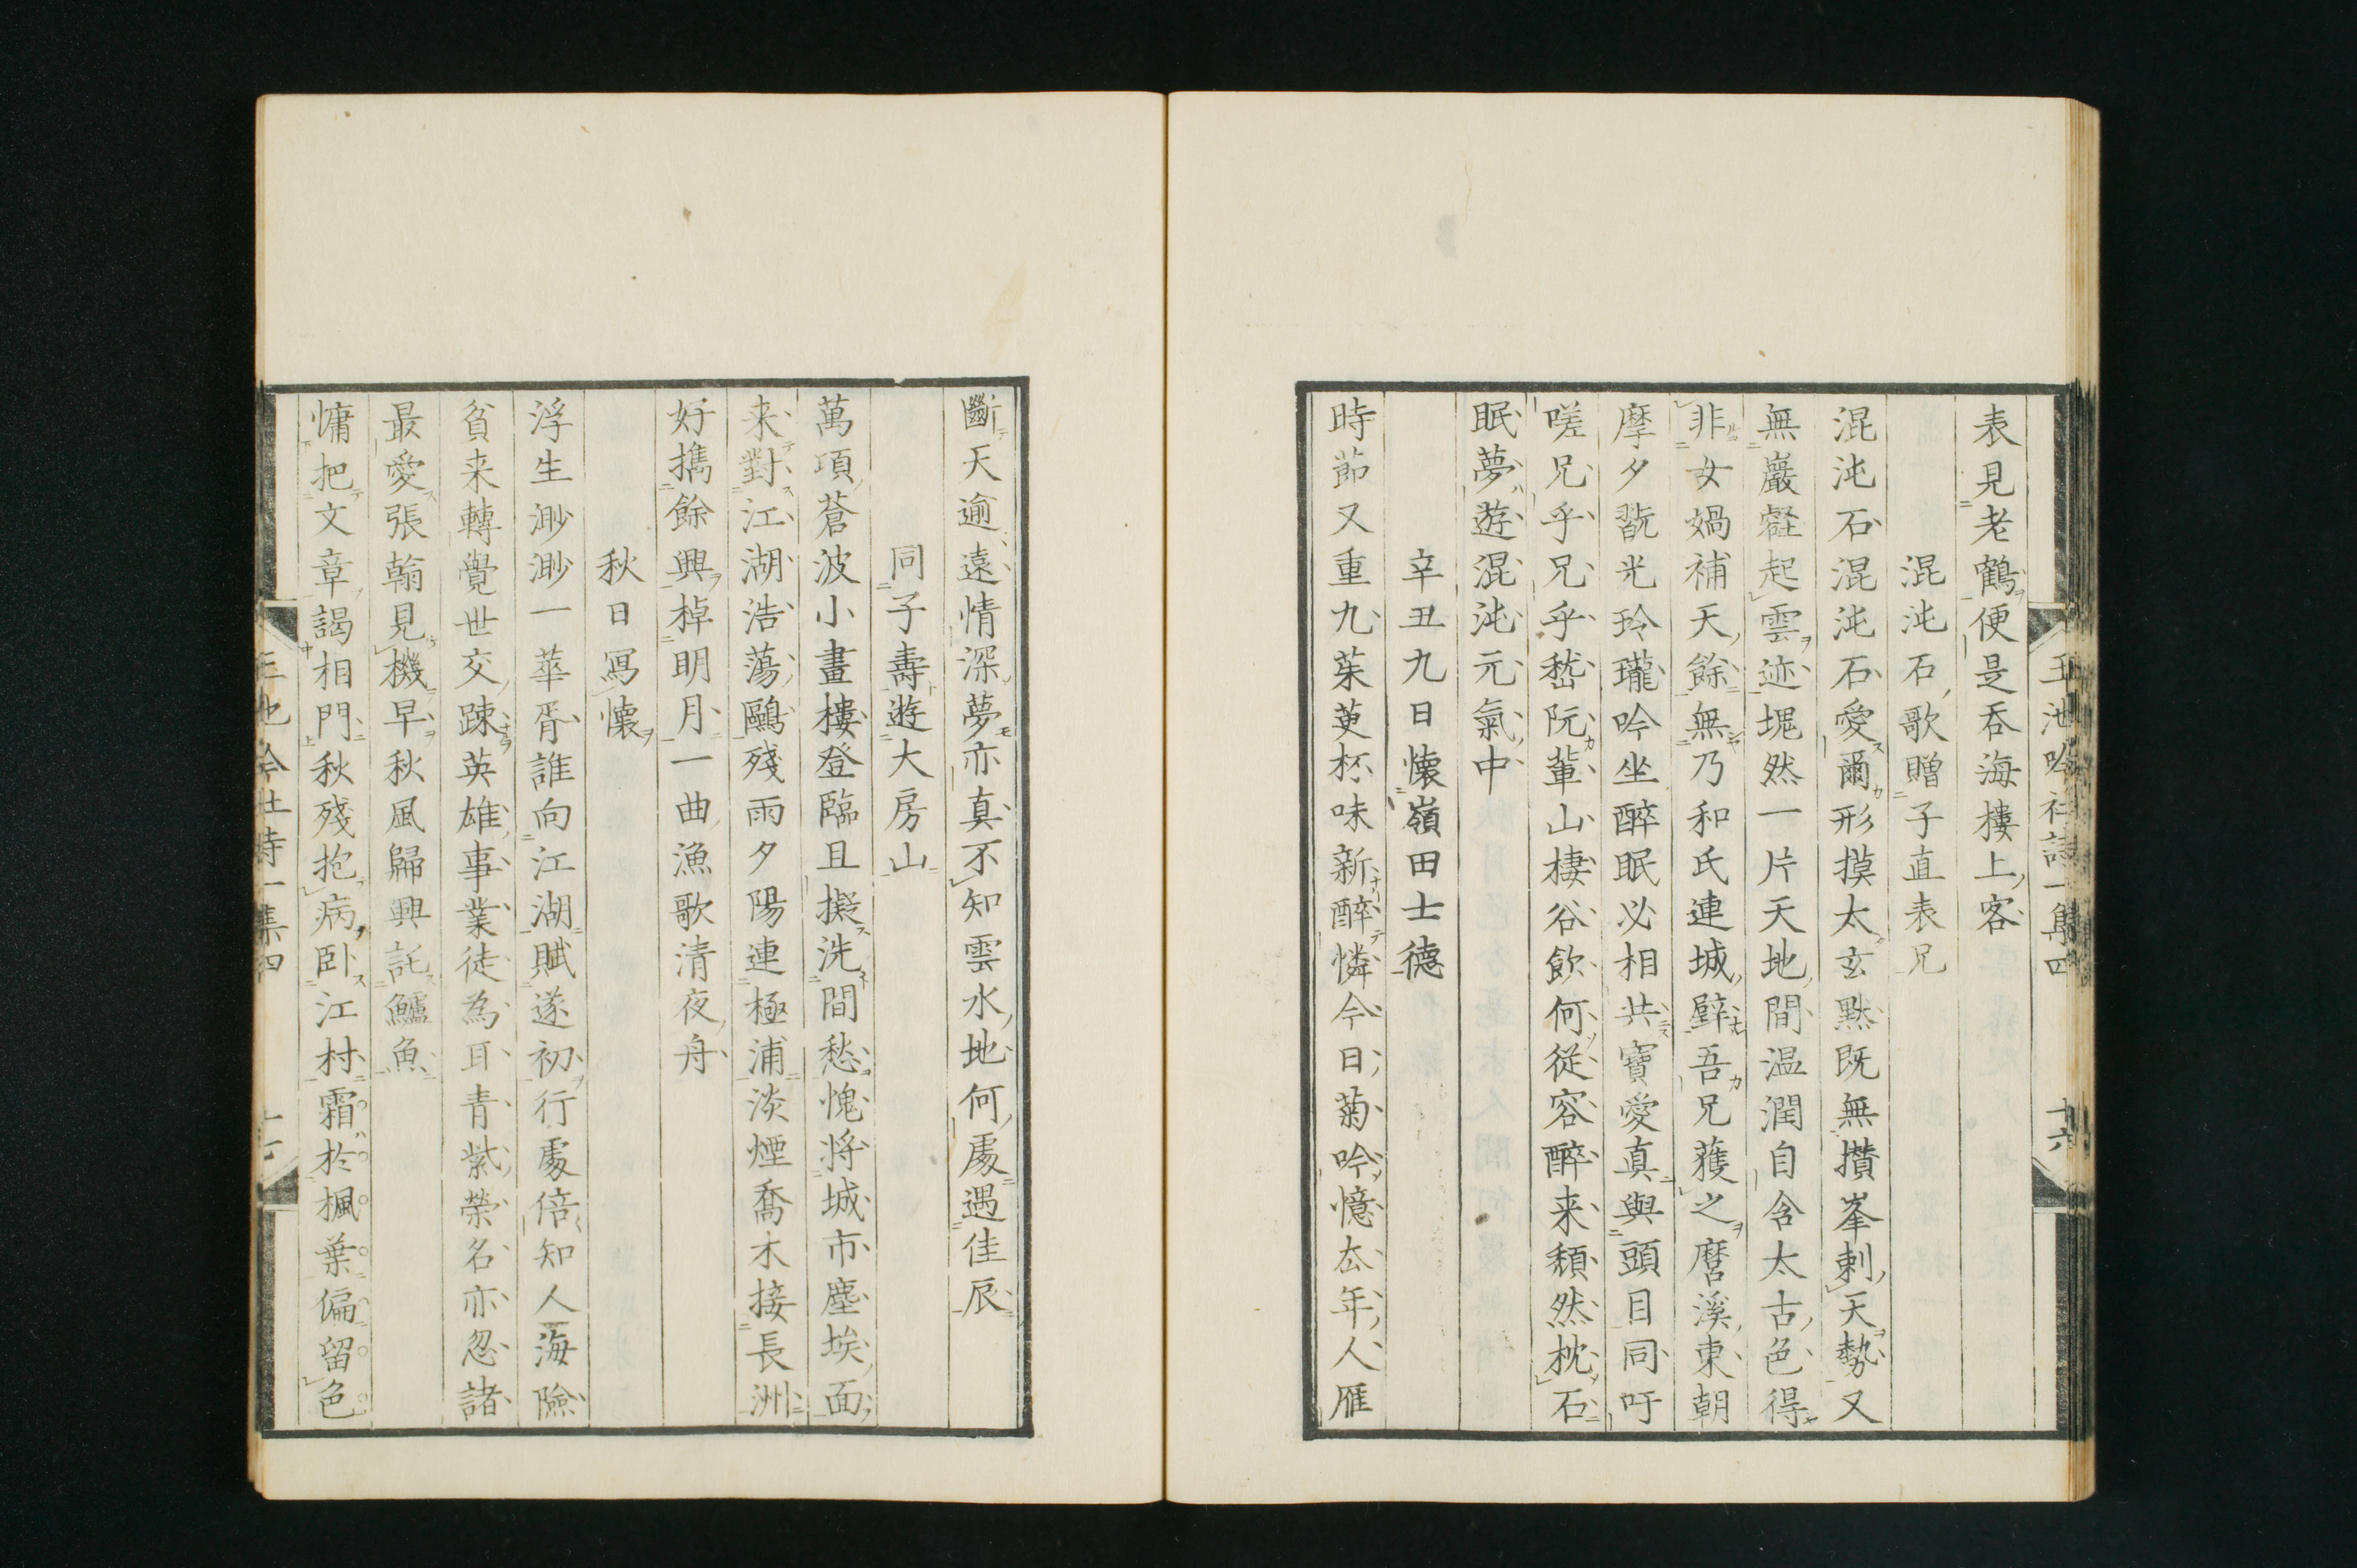 玉池吟社詩一集四 十六
表見老鶴便是呑海樓上客
混沌石歌贈子直表兄
混沌石混沌石愛爾形摸太玄黙既無攅峯剌天勢又
無巖壑起雲迹塊然一片天地間温潤自含太古色得
非女媧補天餘無乃和氏連城璧吾兄獲之麿溪東朝
摩夕翫光玲瓏吟坐醉眠必相共寶愛真與頭目同吁
嗟兄乎兄乎嵇阮輩山棲谷飲何從容醉来頽然枕石
眠夢遊混沌元氣中
辛丑九日懐嶺田士德
時節又重九茱萸杯味新醉憐今日菊吟憶去年人雁
斷天逾遠情深夢亦真不知雲水地何處遇佳辰
同子壽遊大房山
萬項蒼波小畫樓登臨且擬洗間愁愧将城市塵埃面
来對江湖浩蕩鷗殘雨夕陽連極浦淡煙喬木接長洲
好攜餘興棹明月一曲漁歌清夜舟
秋日寫懐
浮生渺渺一華胥誰向江湖賦遂初行處倍知人海險
貧来轉覺世交踈英雄事業徒為耳青紫榮名亦忽諸
最愛張翰見機早秋風歸興託鱸魚
慵把文章謁相門秋殘抱病卧江村霜於楓葉偏留色